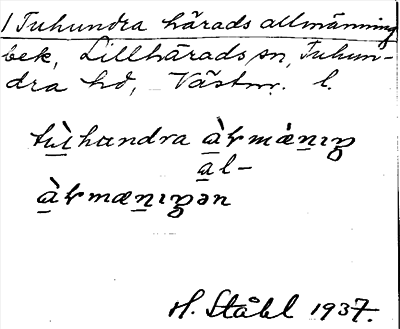 / Tuhundra härads allmänning
bek, Lillhärads sn, Tuhun-
dra hd, Västm. l.
tù̲hundra à̲ɽmä̀n̲ɪŋ
a̲l-
à̲ɽmæn̲ɪŋən
H. Ståhl 1937.